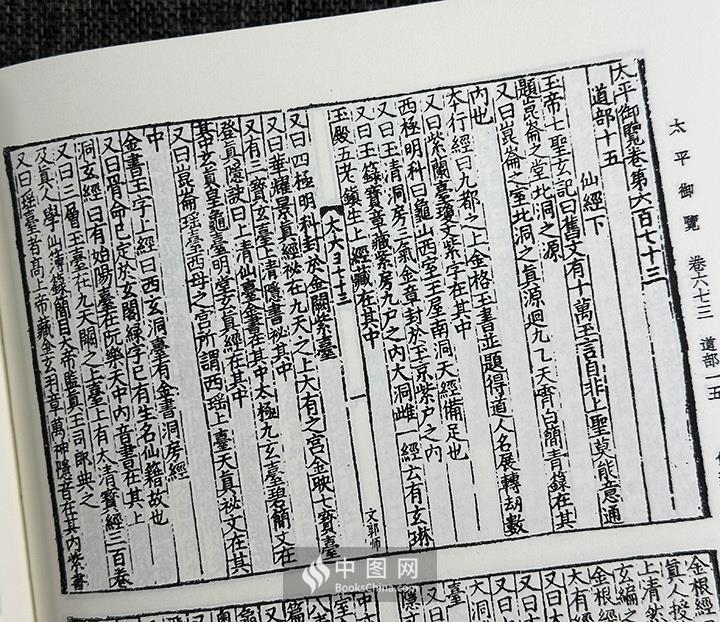 太平御覽 卷六七三 道部一五
太平御覽卷第六百七十三
道部十五
仙經下
玉帝七聖玄記曰舊文有十萬玉言自非上聖莫能意通
題崑崙之堂北洞之源
又曰崑崙之室北洞之真源迴九乙天霄白簡青籙在其
內也
太行經曰九都之上金格玉書並題得道人名展轉劫數
又曰紫蘭臺瓊文紫字在其中
西極明科曰龜山西室王屋南洞天經備足也
又曰玉清洞房三氣金章封於玉京紫戶之內
又曰玉籙寶章藏紫房九戶之內大洞雌一經云有玄琳
玉殿五老鎮生上經藏在其中
太六百七十三 一 文郭師
又曰四極明科封於金闕紫臺
又曰華耀景真經祕在九天之上大有之宮金映七寶臺
又有三寶玄臺上清隱書祕其中
登真隱訣曰上清仙臺金書在其中太極九玄臺碧簡文在
其中玄真至龜臺明堂玄真經在其中
又曰崑崙瑶臺西母之宮所謂西瑶上臺天真祕文在其
中
金書玉字上經曰西玄洞臺有金書洞房經
又曰骨命已定於玄閣綠字已有生名仙籍故也
洞玄經曰有始陽臺在阮樂天中內音書在其上
又曰三層玉臺在九天關之上臺上有大清寶經三百卷
及真人學仙簿錄簡目大帝監真玉司郎典之
又曰瑶臺者高上帝藏金玄羽章萬神隱音在其內紫書
金根經
真人授
上清然
玄編之
金根經
大有經
中图网
BooksChina.com